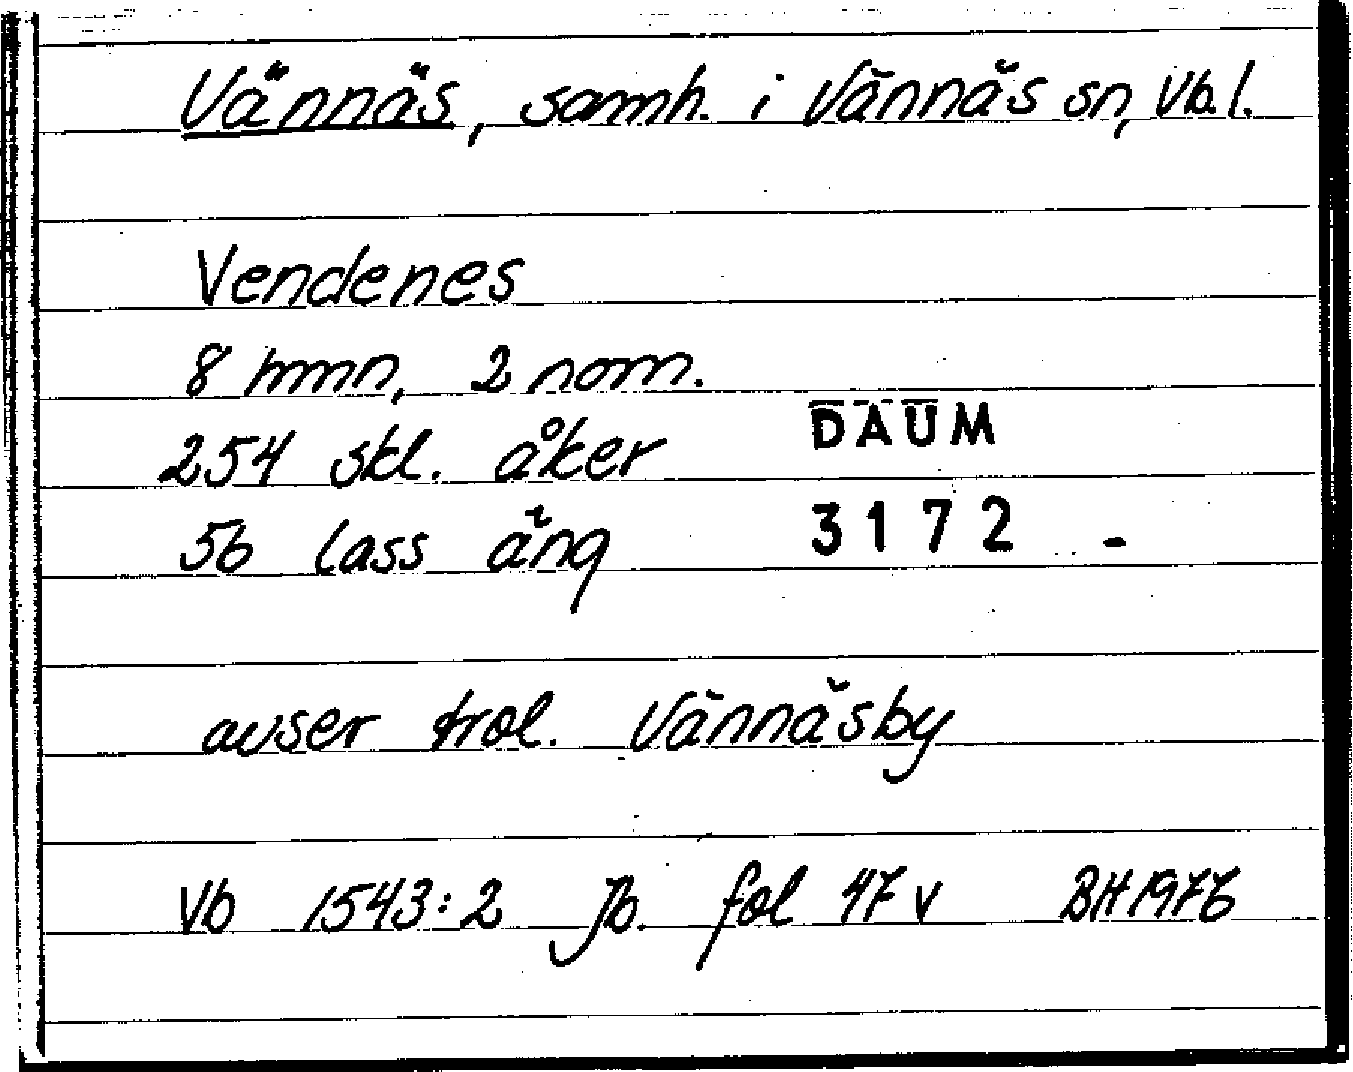 Vännäs, samh. i Vännäs sn, Vb. l.
Vendenes
8 hmn, 2 nom.
254 skl. åker
DAUM
56 lass äng
3172 -
avser trol. Vännäsby
Vb 1543:2 Jb. fol 47 v BH 1976